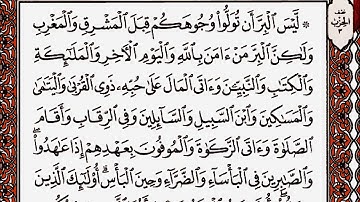 ۞ لَّيْسَ ٱلْبِرَّ أَن تُوَلُّوا۟ وُجُوهَكُمْ قِبَلَ ٱلْمَشْرِقِ وَٱلْمَغْرِبِ
وَلَٰكِنَّ ٱلْبِرَّ مَنْ ءَامَنَ بِٱللَّهِ وَٱلْيَوْمِ ٱلْءَاخِرِ وَٱلْمَلَٰٓئِكَةِ
وَٱلْكِتَٰبِ وَٱلنَّبِيِّۦنَ وَءَاتَى ٱلْمَالَ عَلَىٰ حُبِّهِۦ ذَوِى ٱلْقُرْبَىٰ وَٱلْيَتَٰمَىٰ
وَٱلْمَسَٰكِينَ وَٱبْنَ ٱلسَّبِيلِ وَٱلسَّآئِلِينَ وَفِى ٱلرِّقَابِ وَأَقَامَ
ٱلصَّلَوٰةَ وَءَاتَى ٱلزَّكَوٰةَ وَٱلْمُوفُونَ بِعَهْدِهِمْ إِذَا عَٰهَدُوا۟ۖ
وَٱلصَّٰبِرِينَ فِى ٱلْبَأْسَآءِ وَٱلضَّرَّآءِ وَحِينَ ٱلْبَأْسِۗ أُو۟لَٰٓئِكَ ٱلَّذِينَ